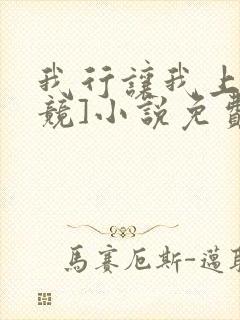 我行讓我上
競]小說免費
馬賽厄斯-邁耶